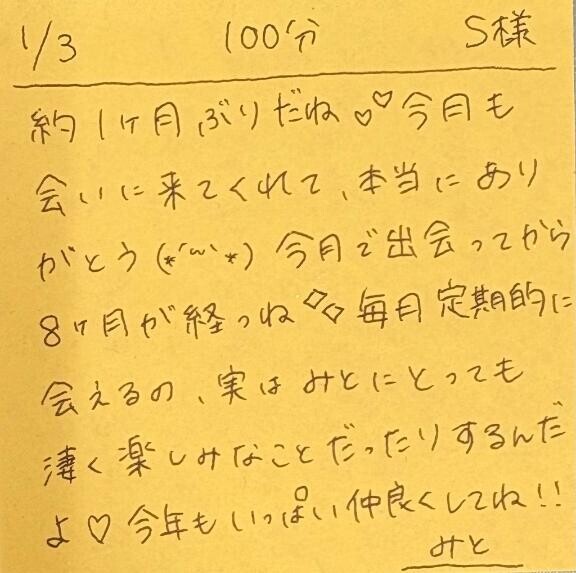 1/3 100分 S様
約1ヶ月ぶりだね♡♡今月も
会いに来てくれて、本当にあり
がとう(*´ω`*)今月で出会ってから
8ヶ月が経つね◇◇毎月定期的に
会えるの、実はみとにとっても
凄く楽しみなことだったりするんだ
よ♡今年もいっぱい仲良くしてね!!
みと